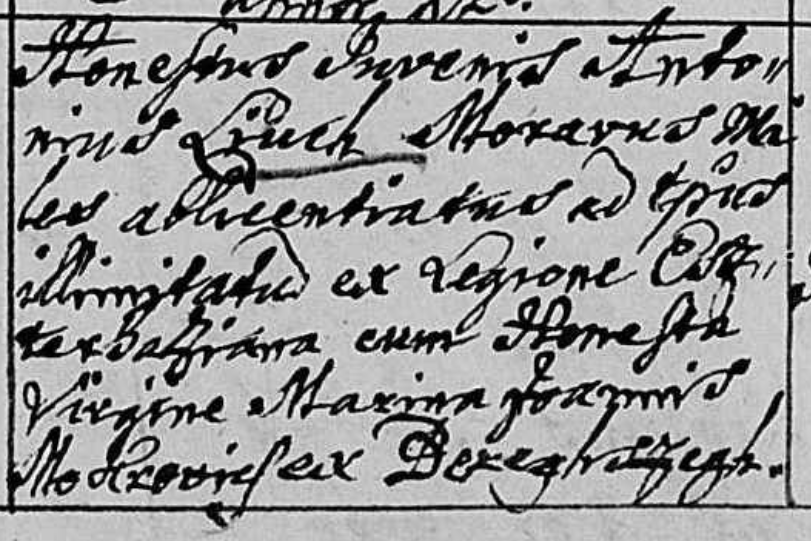 Honestus Juvenis Anto„
nius Liuch Moravus Mi
les ablicentiatus ad tpus
illimitatū ex Legione Est„
terhaziana cum Honesta
Virgine Marina Joannis
Mokrovics ex Bereghszegh.